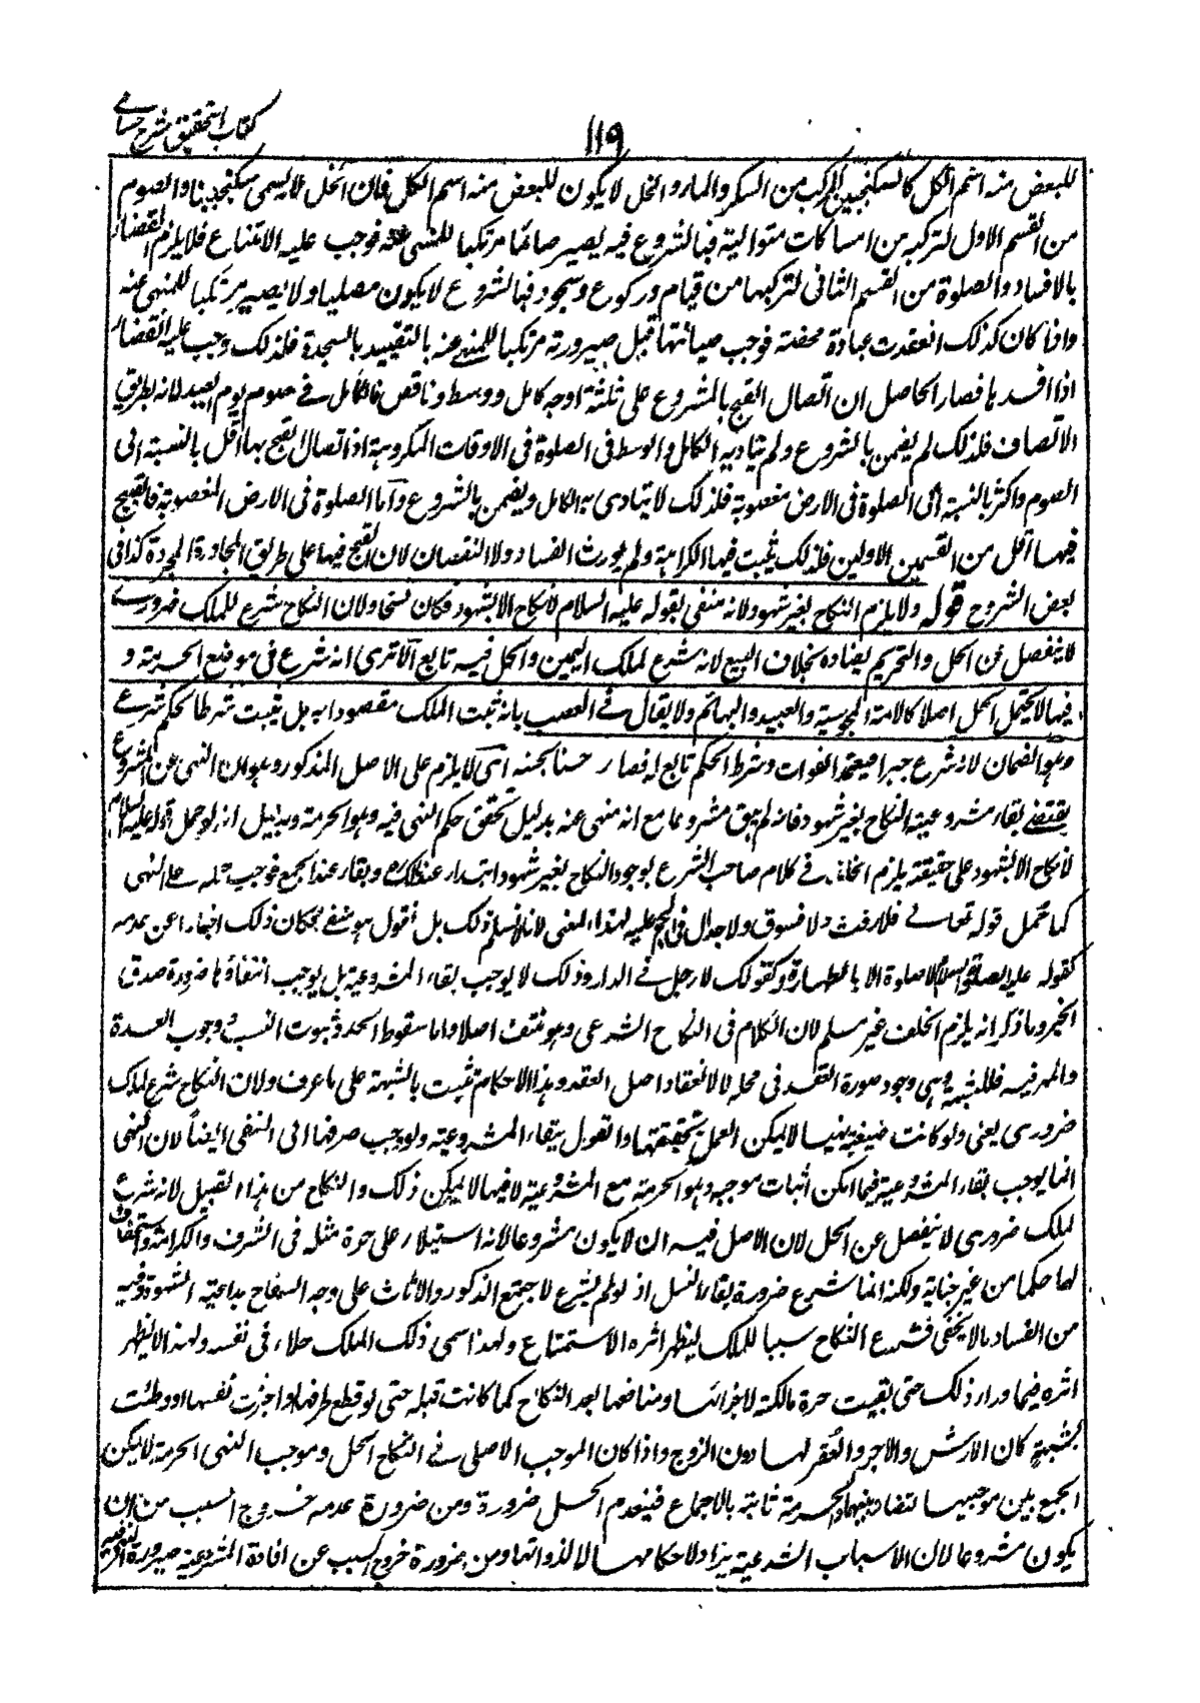 كتاب التحقيق شرح حسامى
١١٩
للبعض منه اسم الكل كالسكنجبين المركب من السكر والماء والخل لا يكون للبعض منه اسم الكل فان الخل لا يسمى سكنجبينا والصوم
من القسم الاول لتركبه من امساكات متوالية فبالشروع فيه يصير صائما مرتكبا للمنهى عنه فوجب عليه الامتناع فلا يلزم القضاء
بالافساد والصلوة من القسم الثانى لتركبها من قيام وركوع وسجود فبالشروع لا يكون مصليا ولا يصير مرتكبا للمنهى عنه
واذا كان كذلك انعقدت عبادة محضة فوجب صيانتها قبل صيرورته مرتكبا للمنهى عنه بالتقييد بالسجدة فلذلك وجب عليه القضاء
اذا افسدها فصار الحاصل ان اتصال القبح بالمشروع على ثلثة اوجه كامل ووسط وناقص فالكامل فى صوم يوم العيد لانه بطريق
الاتصاف فلذلك لم يضمن بالشروع ولم يتاد به الكامل والوسط فى الصلوة فى الاوقات المكروهة اذ اتصال القبح بها اقل بالنسبة الى
الصوم واكثر بالنسبة الى الصلوة فى الارض مغصوبة فلذلك لا يتادى به الكامل ويضمن بالشروع واما الصلوة فى الارض المغصوبة فالقبح
فيها اقل من القسمين الاولين فلذلك يثبت فيها الكراهة ولم يورث الفساد ولا النقصان لان القبح فيها على طريق المجاورة المجردة كذا فى
بعض الشروح قوله ولا يلزم النكاح بغير شهود لانه منفى بقوله عليه السلام لا نكاح الا بشهود فكان نسخا ولان النكاح شرع للملك ضرورى
لا ينفصل عن الحل والتحريم يضاده بخلاف البيع لانه شرع لملك اليمين والحل فيه تابع الا ترى انه شرع فى موضع الحرمة و
فيما لا يحتمل الحل اصلا كالامة المجوسية والعبيد والبهائم ولا يقال فى الغصب بانه ثبت الملك مقصودا به بل يثبت شرطا لحكم شرعى
وهو الضمان لانه شرع جبرا فيعتمد الفوات وشرط الحكم تابع له فصار حسنا بحسنه اى لا يلزم على الاصل المذكور وهو ان النهى عن المشروع
يقتضى بقاء مشروعيته النكاح بغير شهود فانه لم يبق مشروعا مع انه منهى عنه بدليل تحقق حكم النهى فيه وهو الحرمة وبدليل انه لو حمل قوله عليه السلام
لا نكاح الا بشهود على حقيقته يلزم الخلف فى كلام صاحب الشرع لوجود النكاح بغير شهود ابتداء عند مالك وبقاء عند الجمع فوجب حمله على النهى
كما حمل قوله تعالى فلا رفث ولا فسوق ولا جدال فى الحج عليه لهذا المعنى لانا لا نسلم ذلك بل نقول هو منفى فكان ذلك اخبارا عن عدمه
كقوله عليه الصلوة والسلام لا صلوة الا بالطهارة وكقولك لا رجل فى الدار وذلك لا يوجب بقاء المشروعية بل يوجب انتفاءها ضرورة صدق
الخبر وما ذكر انه يلزم الخلف غير مسلم لان الكلام فى النكاح الشرعى وهو منتف اصلا واما سقوط الحد وثبوت النسب ووجوب العدة
والمهر فيه فللشبهة وهى وجود صورة العقد فى محله لا لانعقاد اصل العقد وهذه الاحكام تثبت بالشبهة على ما عرف ولان النكاح شرع لملك
ضرورى يعنى ولو كانت صيغته نهيا لا يمكن العمل بحقيقتها والقول ببقاء المشروعية ولوجب صرفها الى النفى ايضا لان النهى
انما يوجب بقاء المشروعية فيما امكن اثبات موجبه وهو الحرمة مع المشروعية لا فيما لا يمكن ذلك والنكاح من هذا القبيل لانه شرع
لملك ضرورى لا ينفصل عن الحل لان الاصل فيه ان لا يكون مشروعا لانه استيلاء على حرة مثله فى الشرف والكرامة واستخفاف
لها حكما من غير جناية ولكنه انما شرع ضرورة بقاء النسل اذ لو لم يشرع لاجتمع الذكور والاناث على وجه السفاح بداعية الشهوة وفيه
من الفساد ما لا يخفى فشرع النكاح سببا للملك ليظهر اثره الاستمتاع ولهذا سمى ذلك الملك حلاء فى نفسه ولهذا لا يظهر
اثره فيما وراء ذلك حتى بقيت حرة مالكة لاجزائها ومنافعها بعد النكاح كما كانت قبله حتى لو قطع طرفها او اجرت نفسها او وطئت
بشبهة كان الارش والاجر والعقر لها دون الزوج واذا كان الموجب الاصلى فى النكاح الحل وموجب النهى الحرمة لا يمكن
الجمع بين موجبيهما لتضاد بينهما والحرمة ثابتة بالاجماع فينعدم الحل ضرورة ومن ضرورة عدمه خروج السبب من ان
يكون مشروعا لان الاسباب الشرعية يراد لاحكامها لا لذواتها ومن ضرورة خروج السبب عن افادة المشروعية صيرورة